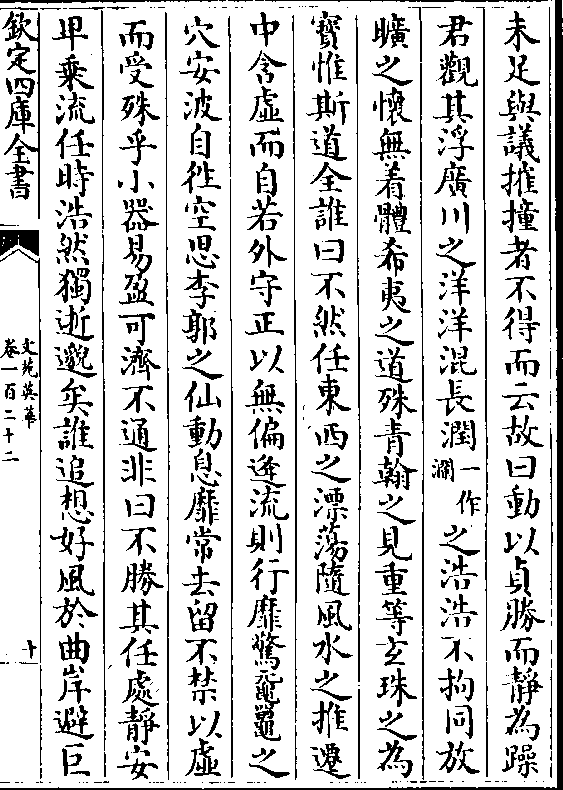 未足與議摧撞者不得而云故曰動以貞勝而靜為躁
君觀其浮廣川之洋洋混長潤一作瀾之浩浩不拘同放
曠之懷無着體希夷之道殊青翰之見重等玄珠之為
寳惟斯道全誰曰不然任東西之漂蕩隨風水之推遷
中含虛而自若外守正以無偏逢流則行靡驚黿鼉之
穴安波自徃空思李郭之仙動息靡常去留不禁以虛
而受殊乎小器易盈可濟不通非曰不勝其任處靜安
卑乗流任時浩然獨逝邈矣誰追想好風於曲岸避巨
欽定四庫全書
文苑英華
卷一百二十二
十